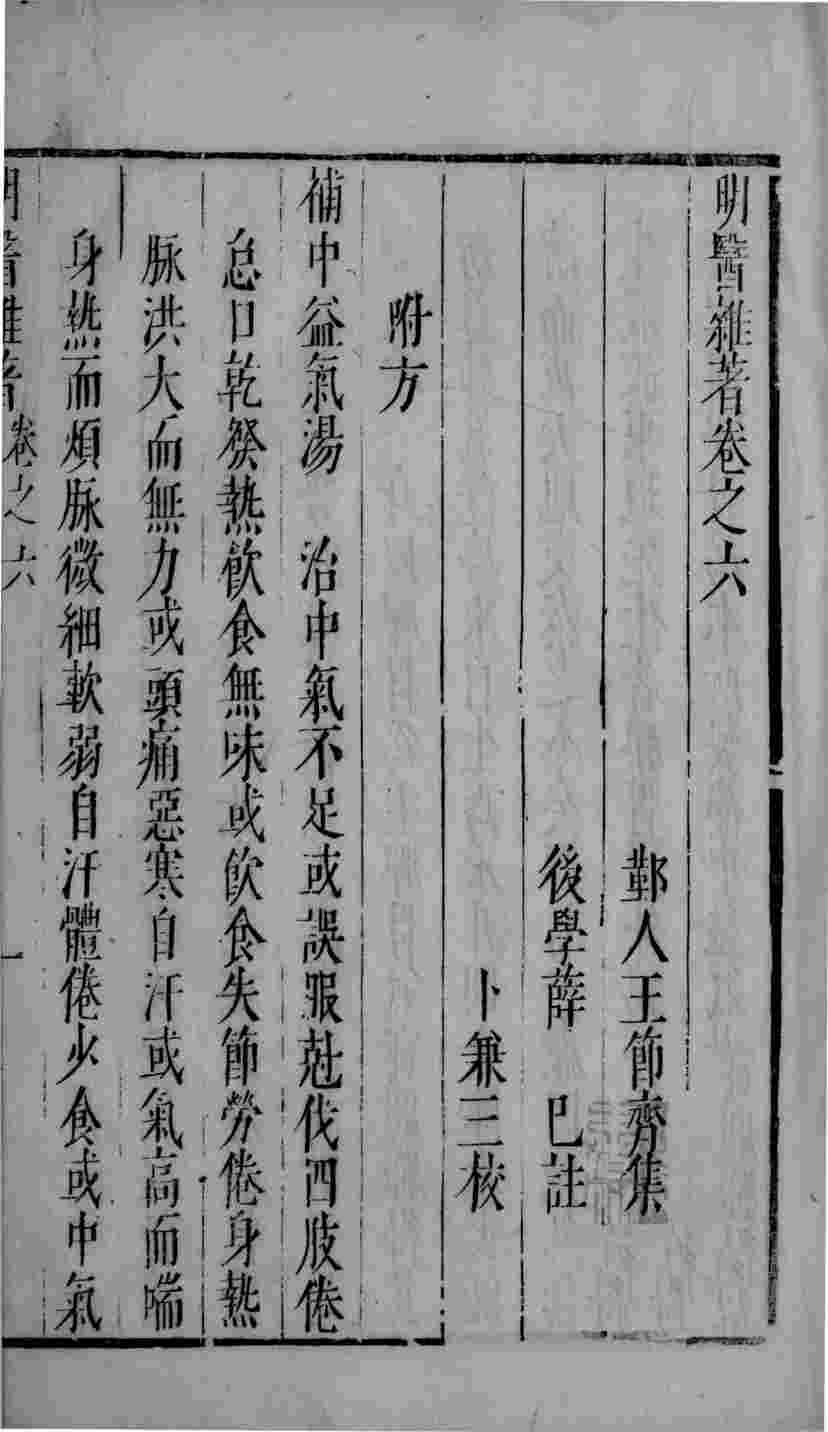 明醫雜著卷之六
鄞人王節齋集
後學薛　已註
卜兼三校
附方
補中益氣湯　治中氣不足或誤服尅伐四肢倦
怠口乾發熱飲食無味或飲食失節勞倦身熱
脉洪大而無力或頭痛惡寒自汗或氣高而喘
身熱而煩脉微細軟弱自汗體倦少食或中氣
明醫雜著　卷之六　一